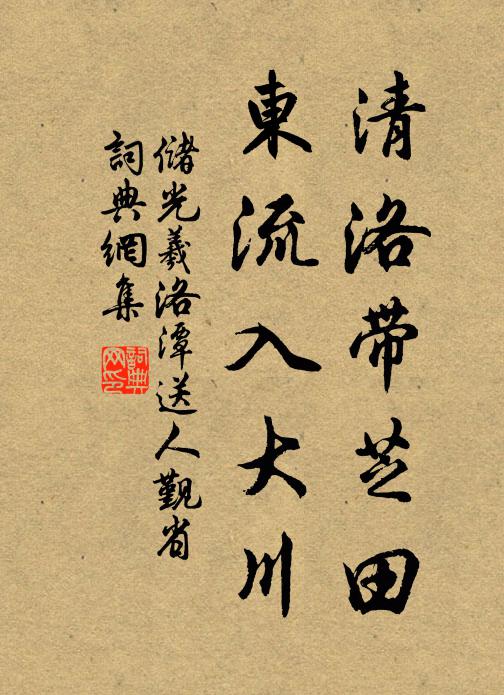 清洛带芝田
東流入大川
儲光羲洛潭送人覲省
詞典網集
詞典
网印